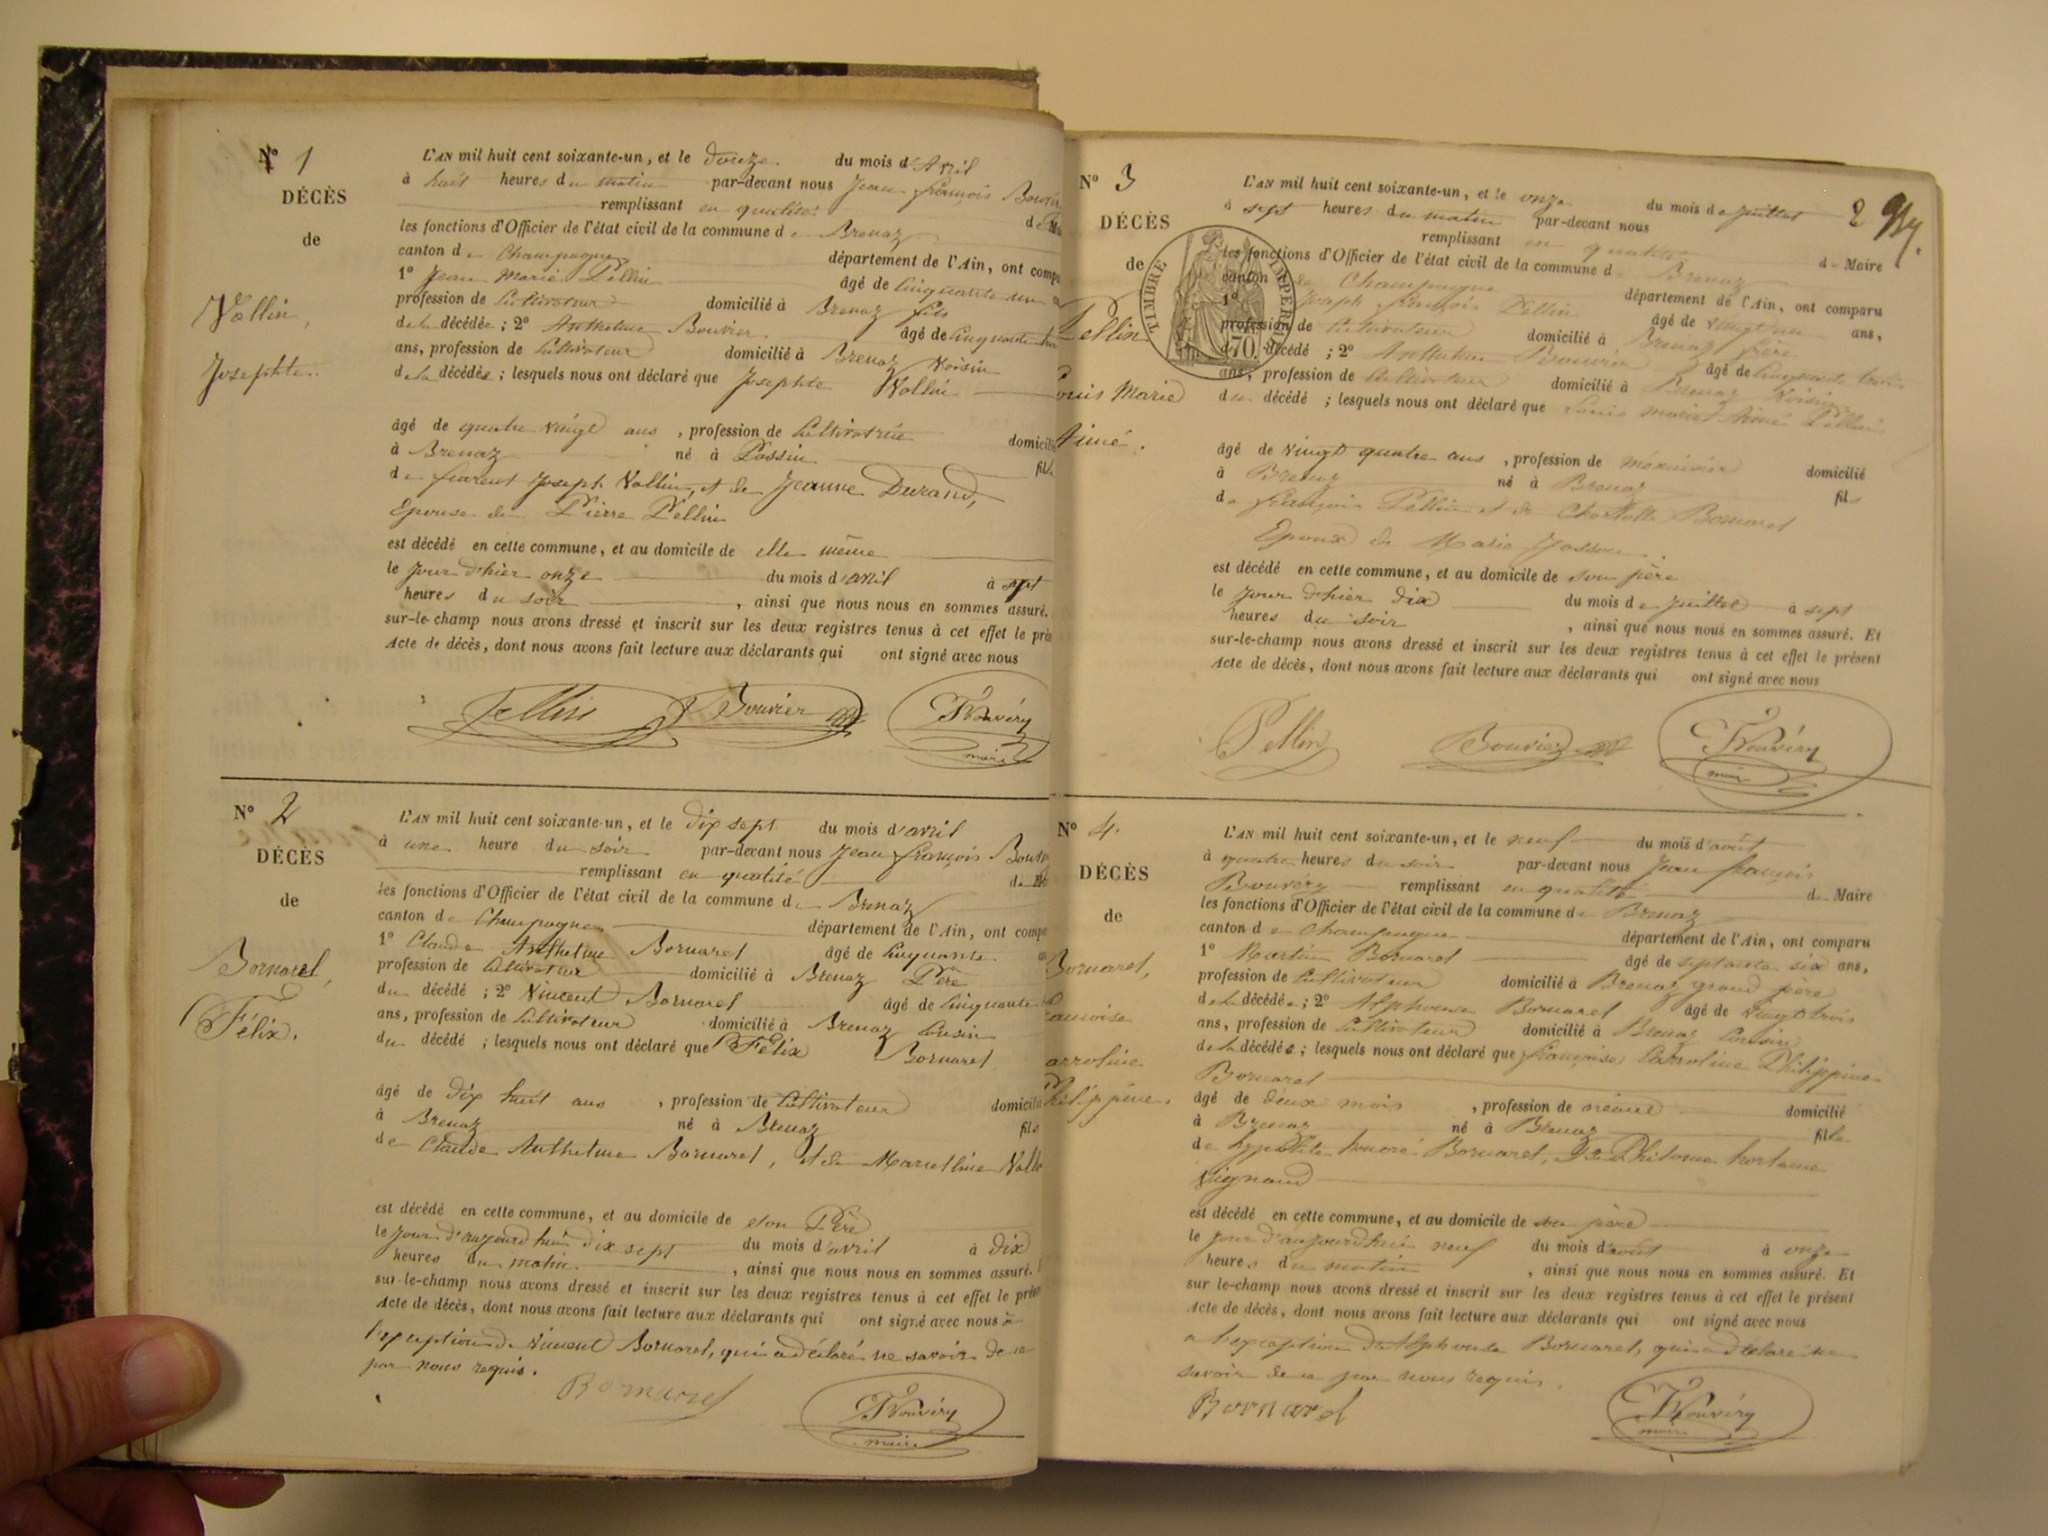 N° 1
DÉCÈS
de
Vollin,
Josephte.
L'AN mil huit cent soixante-un, et le douze du mois d'Avril
à huit heures du matin par-devant nous Jean françois
remplissant en qualité de
les fonctions d'Officier de l'état civil de la commune de Brenaz
canton de Champagne département de l'Ain, ont comp
1° Jean Marie Pellin âgé de Cinquante un
profession de Cultivateur domicilié à Brenaz fils
de la décédée ; 2° Anthelme Bouvier âgé de Cinquante
ans, profession de Cultivateur domicilié à Brenaz Voisin
de la décédée ; lesquels nous ont déclaré que Josephte Vollin
âgé de quatre vingt ans , profession de Cultivatrice domicilié
à Brenaz né à Passin fille
de Joseph Vollin, et de Jeanne Durand,
Epouse de Pierre Pellin
est décédé en cette commune, et au domicile de elle même
le Jour d'hier onze du mois d'avril à sept
heures du soir , ainsi que nous nous en sommes assuré.
sur-le-champ nous avons dressé et inscrit sur les deux registres tenus à cet effet le prés
Acte de décès, dont nous avons fait lecture aux déclarants qui ont signé avec nous
Pellin Bouvier Bouvéry
maire
N° 2
DÉCÈS
de
Bornarel,
Félix.
L'AN mil huit cent soixante-un, et le dix sept du mois d'avril
à une heure du soir par-devant nous Jean françois
remplissant en qualité de
les fonctions d'Officier de l'état civil de la commune de Brenaz
canton de Champagne département de l'Ain, ont comp
1° Claude Anthelme Bornarel âgé de Cinquante
profession de Cultivateur domicilié à Brenaz Père
du décédé ; 2° Vincent Bornarel âgé de Cinquante
ans, profession de Cultivateur domicilié à Brenaz Cousin
du décédé ; lesquels nous ont déclaré que Félix Bornarel
âgé de dix huit ans , profession de Cultivateur domicilié
à Brenaz né à Brenaz fils
de Claude Anthelme Bornarel, et de Marcelline
est décédé en cette commune, et au domicile de son Père
le Jour d'aujourd'hui dix sept du mois d'avril à dix
heures du matin , ainsi que nous nous en sommes assuré.
sur-le-champ nous avons dressé et inscrit sur les deux registres tenus à cet effet le prése
Acte de décès, dont nous avons fait lecture aux déclarants qui ont signé avec nous à
l'exception de Vincent Bornarel, qui a déclaré ne savoir de ce
par nous requis.
Bornarel Bouvéry
maire
2
N° 3
DÉCÈS
de
Pellin
Louis Marie
Aimé.
TIMBRE IMPERIAL
70
L'AN mil huit cent soixante-un, et le onze du mois de Juillet
à sept heures du matin par-devant nous
remplissant en qualité de Maire
les fonctions d'Officier de l'état civil de la commune de Brenaz
canton de Champagne département de l'Ain, ont comparu
1° Joseph françois Pellin âgé de vingt un ans,
profession de Cultivateur domicilié à Brenaz frère
du décédé ; 2° Anthelme Bouvier âgé de Cinquante trois
ans, profession de Cultivateur domicilié à Brenaz Voisin
du décédé ; lesquels nous ont déclaré que Louis Marie Aimé Pellin
âgé de vingt quatre ans , profession de menuisier domicilié
à Brenaz né à Brenaz fils
de françois Pellin et de Charlotte Bornarel
Epoux de Marie
est décédé en cette commune, et au domicile de son père
le Jour d'hier dix du mois de Juillet à sept
heures du soir , ainsi que nous nous en sommes assuré. Et
sur-le-champ nous avons dressé et inscrit sur les deux registres tenus à cet effet le présent
Acte de décès, dont nous avons fait lecture aux déclarants qui ont signé avec nous
Pellin Bouvier Bouvéry
maire
N° 4
DÉCÈS
de
Bornarel,
françoise
Carroline
Philippine
L'AN mil huit cent soixante-un, et le neuf du mois d'août
à quatre heures du soir par-devant nous Jean françois
Bouvéry remplissant en qualité de Maire
les fonctions d'Officier de l'état civil de la commune de Brenaz
canton de Champagne département de l'Ain, ont comparu
1° Martin Bornarel âgé de septante six ans,
profession de Cultivateur domicilié à Brenaz grand père
de la décédée ; 2° Alphonse Bornarel âgé de vingt trois
ans, profession de Cultivateur domicilié à Brenaz Cousin
de la décédée ; lesquels nous ont déclaré que françoise Carroline Philippine
Bornarel
âgé de deux mois , profession de néant domicilié
à Brenaz né à Brenaz fille
de hyppolite honoré Bornarel, & de Philomene hortense
Vignand
est décédé en cette commune, et au domicile de son père
le Jour d'aujourd'hui neuf du mois d'août à onze
heures du matin , ainsi que nous nous en sommes assuré. Et
sur-le-champ nous avons dressé et inscrit sur les deux registres tenus à cet effet le présent
Acte de décès, dont nous avons fait lecture aux déclarants qui ont signé avec nous
a l'exception d'Alphonse Bornarel, qui a déclaré ne
savoir de ce par nous requis.
Bornarel Bouvéry
maire